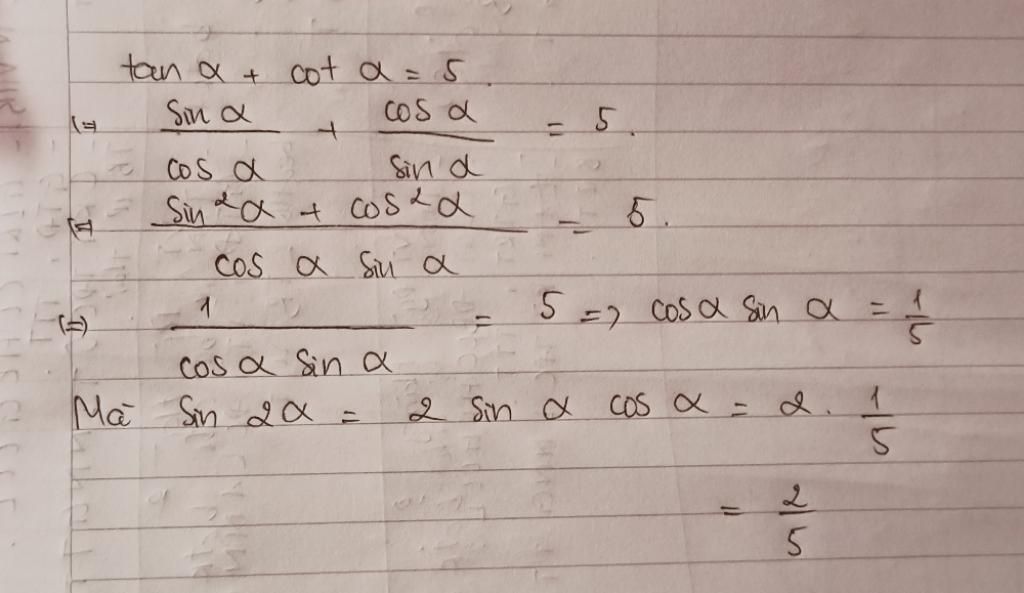 tan α + cot α = 5.
(=) sin α / cos α + cos α / sin α = 5.
(=) sin²α + cos²α / cos α sin α = 5.
(=) 1 / cos α sin α = 5 => cos α sin α = 1/5
Mà sin 2α = 2 sin α cos α = 2. 1/5
= 2/5